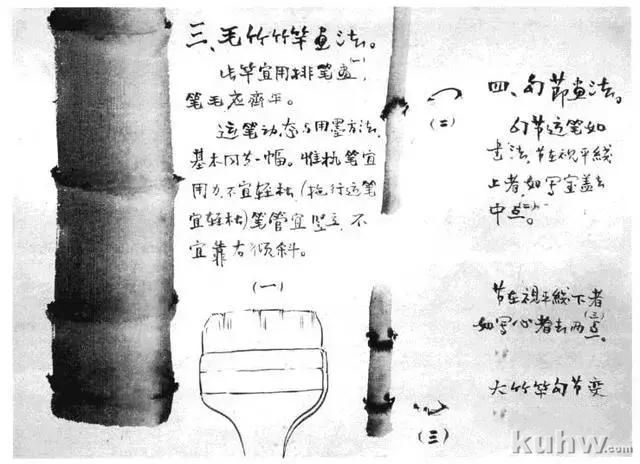 三、毛竹竹竿画法。
此竿宜用排笔画(一),
笔毛应齊平。
运笔动态与用墨方法,
基本同第一幅。惟执笔宜
用力,不宜轻松(拖行运笔
宜轻松)笔管宜竖立,不
宜靠右倾斜。
(一)
(二)
四、勾节画法。
勾节运笔如
书法,节在視平線
上者,如写宝盖去
中点(二)。
节在視平线下者
如写心者去两点(三)。
大竹竿勾节变
(三)
kuhw.com